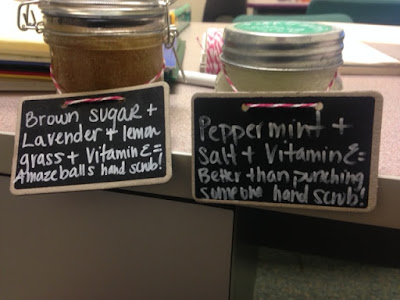 Brown sugar +
Lavender + lemon
grass + Vitamin E =
Amazeballs hand scrub!
Peppermint +
Salt + Vitamin E =
Better than punching
someone hand scrub!